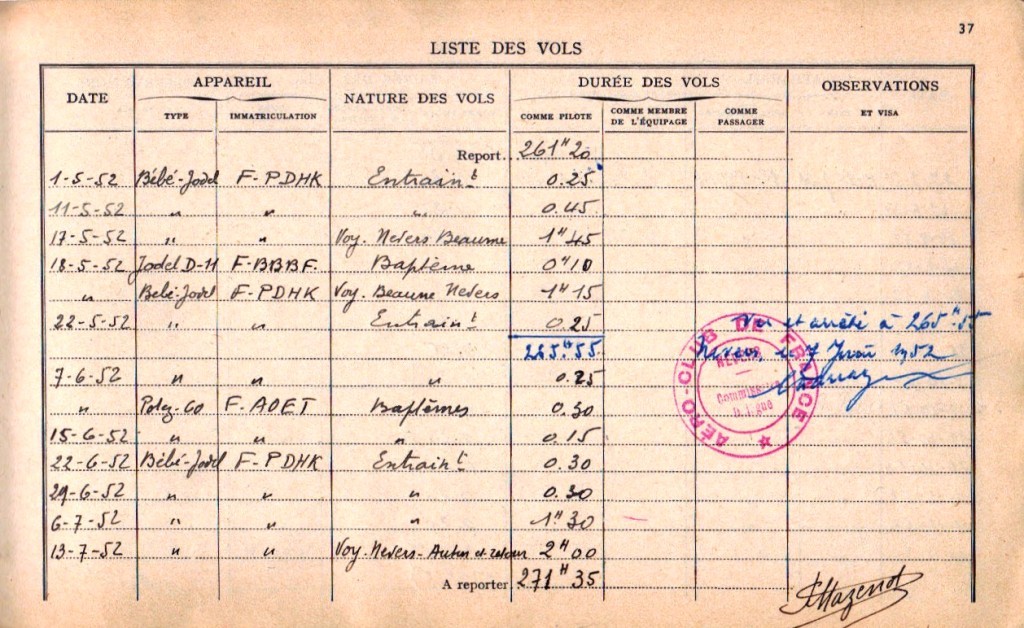 37
LISTE DES VOLS
DATE APPAREIL NATURE DES VOLS DURÉE DES VOLS OBSERVATIONS
TYPE IMMATRICULATION COMME PILOTE COMME MEMBRE DE L'ÉQUIPAGE COMME PASSAGER ET VISA
Report.. 261ᴴ20
1-5-52 Bébé-Jodel F-PDHK Entrainᵗ 0.25
11-5-52 " " " 0.45
17-5-52 " " Voy. Nevers Beaune 1ᴴ45
18-5-52 Jodel D-11 F-BBBF. Baptême 0ᴴ10
" Bébé-Jodel F-PDHK Voy. Beaune Nevers 1ᴴ15
22-5-52 " " Entrainᵗ 0.25 Vu et arrêté à 265ᴴ55
265ᴴ55 Nevers, le 7 Juin 1952
7-6-52 " " " 0.25
" Potez-60 F.AOET Baptêmes 0.30
15-6-52 " " " 0.15
22-6-52 Bébé-Jodel F-PDHK Entrainᵗ 0.30
29-6-52 " " " 0.30
6-7-52 " " " 1ᴴ30
13-7-52 " " Voy. Nevers-Autun et retour 2ᴴ00
A reporter 271ᴴ35
AÉRO-CLUB DE FRANCE
NEVERS